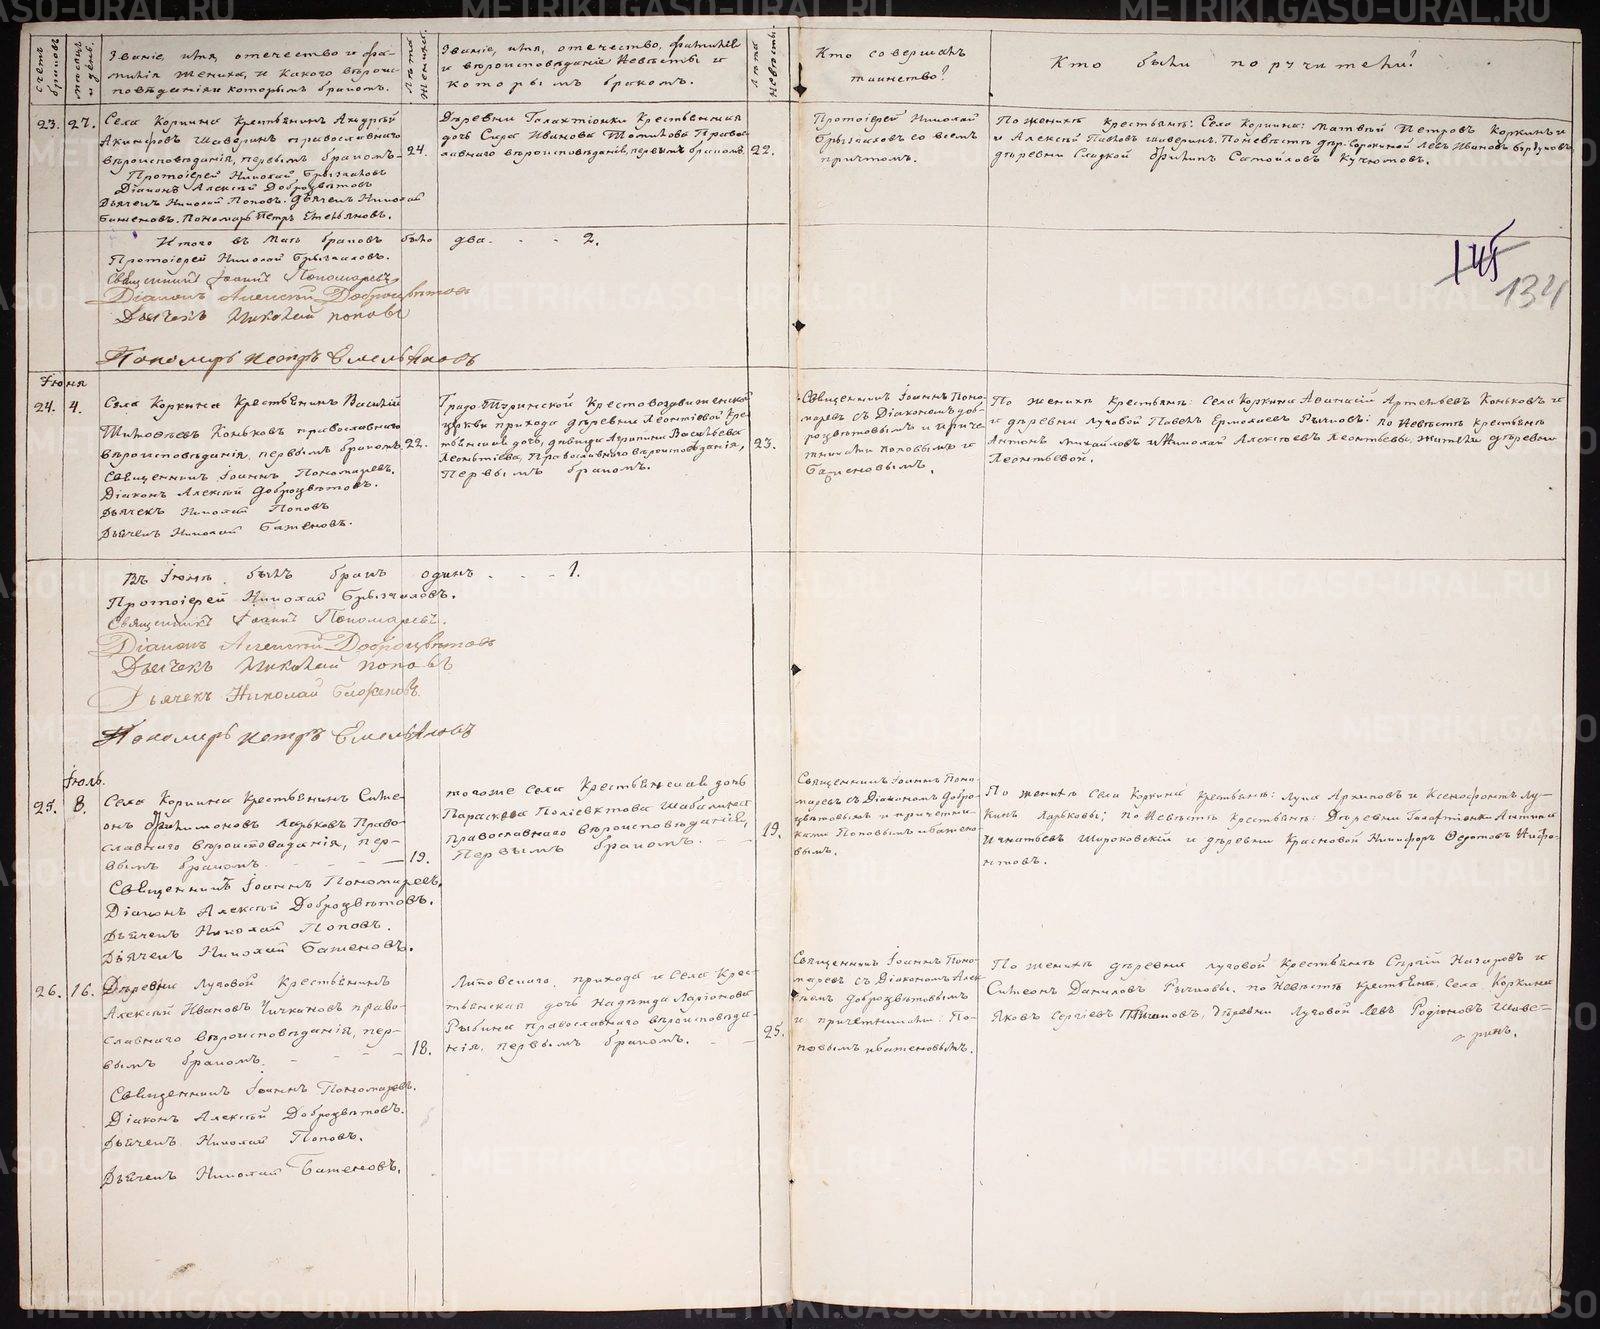 Счетъ браковъ
Мѣсяцъ и день.
Званіе, имя, отечество и фа-
милія жениха, и какого вѣроис-
повѣданія и которымъ бракомъ.
Лѣта жениха.
Званіе, имя, отечество, фамилія
и вѣроисповѣданіе невѣсты и
которымъ бракомъ.
Лѣта невѣсты
Кто совершалъ
таинство?
Кто были поручители?
23. 27.
Села Коркина Крестьянинъ Андрей
Акинфовъ Шаверинъ православнаго
вѣроисповѣданія, первымъ бракомъ.
24.
Протоіерей Николай
Діаконъ Алексѣй Доброцвѣтовъ
Дьячекъ Николай Поповъ. Дьячекъ Николай
Баженовъ. Пономарь Петръ Емельяновъ.
Деревни Галактіонки Крестьянина
дочь Сира Иванова Право-
славнаго вѣроисповѣданія, первымъ бракомъ.
22.
Протоіерей Николай
со всемъ
причтомъ.
По женихѣ крестьянъ: Села Коркина: Матвѣй Петровъ Коркинъ и
и Алексѣй Павловъ Шаверинъ. По невѣстѣ дер. Сорокиной Левъ Ивановъ
деревни Сладкой Филипъ Самойловъ
Итого въ Маѣ браковъ было два. - - 2.
Протоіерей Николай
Священникъ Іоаннъ Пономаревъ
Діаконъ Алексѣй Доброцвѣтовъ
Дьячекъ Николай Поповъ
Пономарь Петръ Емельяновъ
145
134
Іюня
24. 4.
Села Коркина Крестьянинъ Василій
Тимофѣевъ Коньковъ православнаго
вѣроисповѣданія, первымъ бракомъ
22.
Священникъ Іоаннъ Пономаревъ.
Діаконъ Алексѣй Доброцвѣтовъ.
Дьячекъ Николай Поповъ
Дьячекъ Николай Баженовъ.
Градо-Туринской Крестовоздвиженской
церкви прихода деревни Леонтіевой Кре-
стьянская дочь, дѣвица Агрипина Васильева
Леонтіева, Православнаго вѣроисповѣданія,
Первымъ бракомъ.
23.
Священникъ Іоаннъ Поно-
маревъ съ Діакономъ доб-
роцвѣтовымъ и приче-
тниками Поповымъ и
Баженовымъ.
По женихѣ Крестьянъ: Села Коркина Аѳанасій Артемьевъ Коньковъ и
и деревни луговой Павелъ Ермолаевъ Рычковъ: по Невѣстѣ крестьянъ
Антонъ Михайловъ и Николай Алексѣевъ Леонтьевы, жители деревни
Леонтьевой.
Въ Іюнѣ былъ бракъ одинъ - - - 1.
Протоіерей Николай
Священникъ Іоаннъ Пономаревъ.
Діаконъ Алексѣй Доброцвѣтовъ
Дьячекъ Николай Поповъ
Дьячекъ Николай Баженовъ.
Пономарь Петръ Емельяновъ
Іюль.
25. 8.
Села Коркина Крестьянинъ Симе-
онъ Филимоновъ Ларьковъ Право-
славнаго вѣроисповѣданія, пер-
вымъ бракомъ. - - -
19.
Священникъ Іоаннъ Пономаревъ.
Діаконъ Алексѣй Доброцвѣтовъ.
Дьячекъ Николай Поповъ.
Дьячекъ Николай Баженовъ.
тогоже Села Крестьянская дочь
Параскева Поліевктова Шабалина
православнаго вѣроисповѣданія,
Первымъ бракомъ. - -
19.
Священникъ Іоаннъ Поно-
маревъ съ Діакономъ Добро-
цвѣтовымъ и причетни-
ками Поповымъ и Бажено-
вымъ.
По женихѣ Села Коркина крестьянъ: Лука Архиповъ и Ксенофонтъ Лу-
кинъ Ларьковы; по Невѣстѣ крестьянъ: Деревни Галактіонки Антипа
Игнатьевъ Широковскій и деревни Красновой Никифоръ Ѳедотовъ Нифо-
нтовъ.
26. 16.
Деревни Луговой Крестьянинъ
Алексѣй Ивановъ Чичкановъ право-
славнаго вѣроисповѣданія, пер-
вымъ бракомъ. - - - -
18.
Священникъ Іоаннъ Пономаревъ.
Діаконъ Алексѣй Доброцвѣтовъ.
Дьячекъ Николай Поповъ.
Дьячекъ Николай Баженовъ.
Липовскаго прихода и Села Крес-
тьянская дочь Надежда Ларіонова
Рыбина православнаго вѣроисповѣда-
нія, первымъ бракомъ. - -
25.
Священникъ Іоаннъ Поно-
маревъ съ Діакономъ Алек-
сѣемъ Доброцвѣтовымъ
и причетниками: По-
повымъ и Баженовымъ.
По женихѣ деревни луговой крестьянъ Сергѣй Назаровъ и
Симеонъ Даниловъ Рычковы, по Невѣстѣ крестьянъ, Села Коркина
Яковъ Сергіевъ деревни Луговой Левъ Родіоновъ Шаве-
ринъ.
METRIKI.GASO-URAL.RU